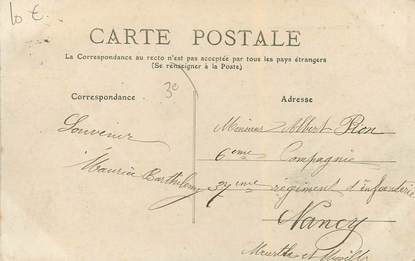 10 €
CARTE POSTALE
La Correspondance au recto n'est pas acceptée par tous les pays étrangers
(Se renseigner à la Poste)
3e
Correspondance
Adresse
Souvenir
Maurice Barthelemy
Monsieur Albert Pion
6eme Compagnie
37eme régiment d'infanterie
Nancy
Meurthe et Moselle